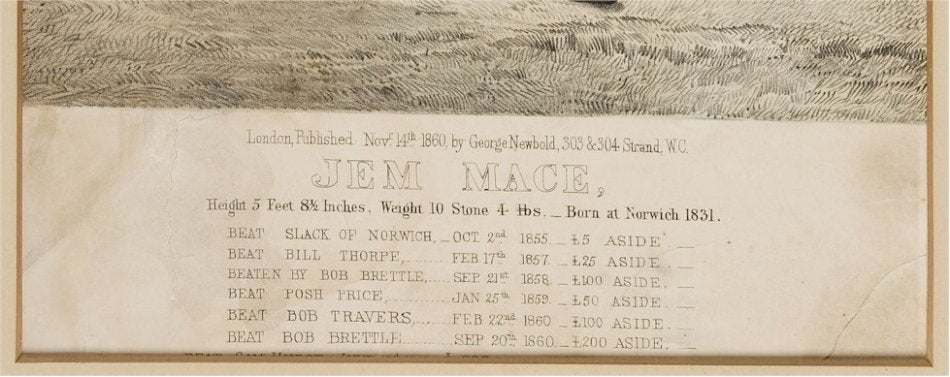 London, Published Novr. 14th 1860, by George Newbold, 303 & 304 Strand, W.C.
JEM MACE,
Height 5 Feet 8½ Inches. Weight 10 Stone 4 lbs. _ Born at Norwich 1831.
BEAT SLACK OF NORWICH, _ OCT 2nd 1855. _ £5 ASIDE. _
BEAT BILL THORPE, ........ FEB 17th 1857. _ £25 ASIDE. _
BEATEN BY BOB BRETTLE, ...... SEP. 21st 1858. _ £100 ASIDE. _
BEAT POSH PRICE, ........ JAN 25th 1859. _ £50 ASIDE. _
BEAT BOB TRAVERS, ...... FEB 22nd 1860 _ £100 ASIDE. _
BEAT BOB BRETTLE ........ SEP 20th 1860. _ £200 ASIDE. _